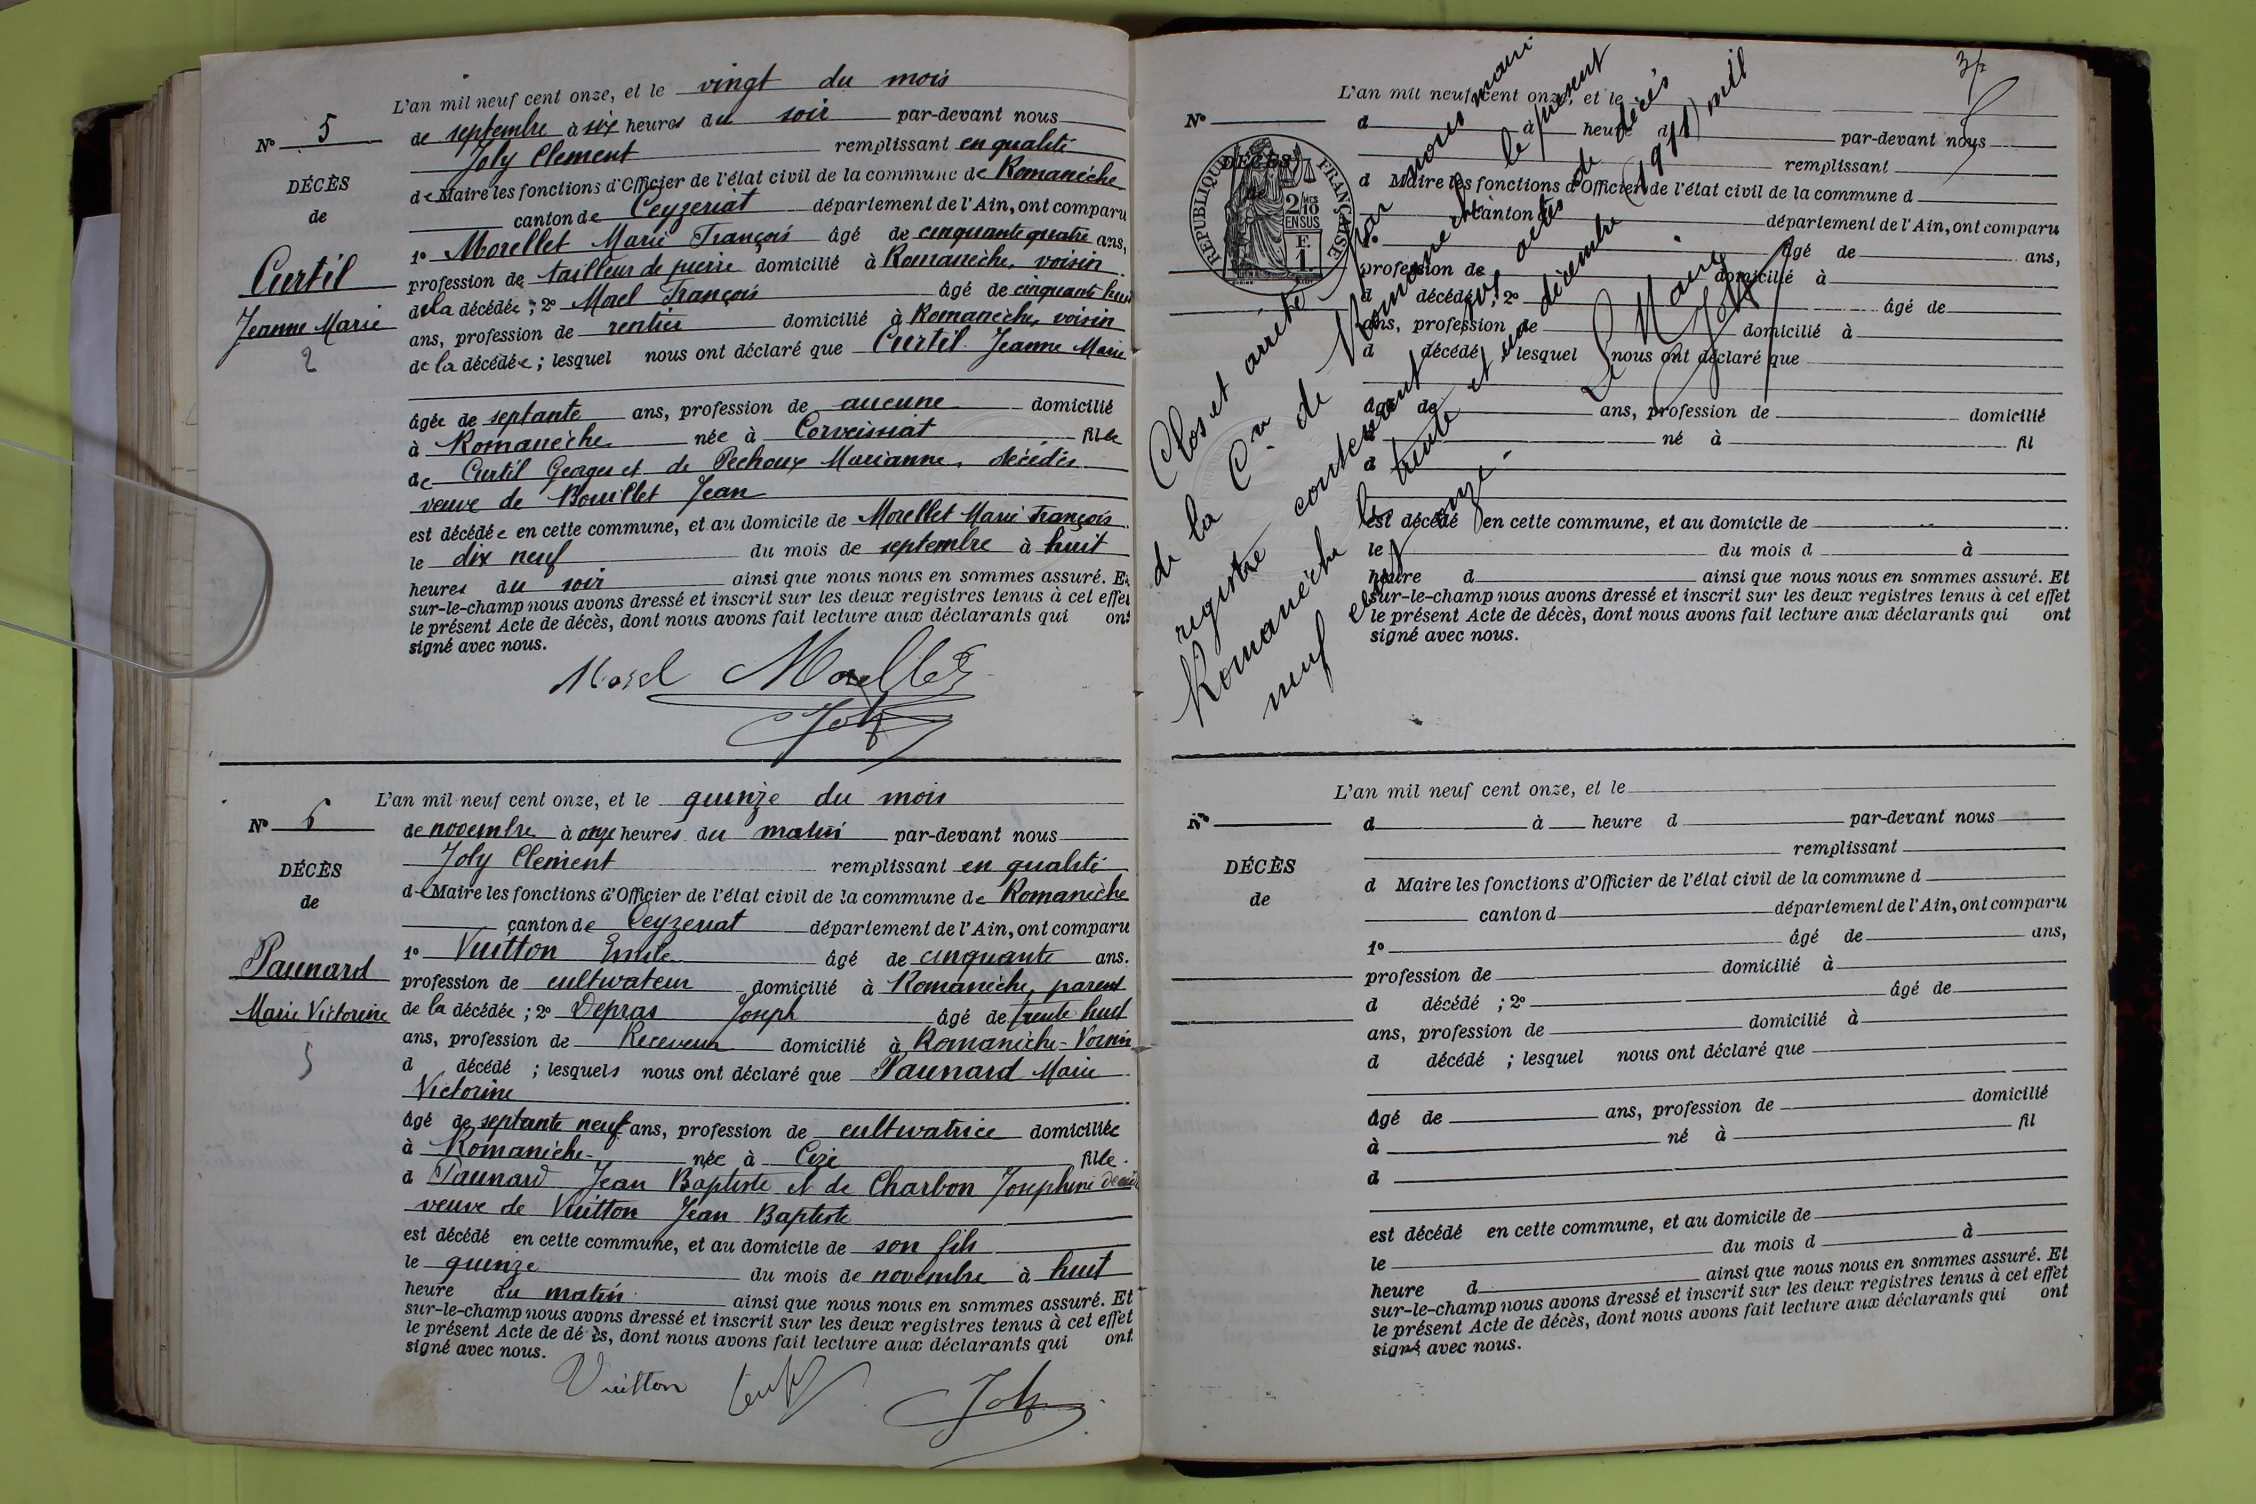 L'an mil neuf cent onze, et le vingt du mois
N° 5
de septembre à six heures du soir par-devant nous
Joly Clement remplissant en qualité
DÉCÈS
de Maire les fonctions d'Officier de l'état civil de la commune de Romanèche
de
canton de Ceyzeriat département de l'Ain, ont comparu
1° Morellet Marie François âgé de cinquante quatre ans,
Curtil
profession de tailleur de pierre domicilié à Romanèche, voisin
Jeanne Marie
de la décédée ; 2° Morel François âgé de cinquante huit
2
ans, profession de rentier domicilié à Romanèche, voisin
de la décédée ; lesquel nous ont déclaré que Curtil Jeanne Marie
âgée de septante ans, profession de aucune domicilié
à Romanèche née à Corveissiat fille
de Curtil Georges et de Pechoux Marianne, décédés
veuve de Bouillet Jean
est décédée en cette commune, et au domicile de Morellet Marie François
le dix neuf du mois de septembre à huit
heures du soir ainsi que nous nous en sommes assuré. Et
sur-le-champ nous avons dressé et inscrit sur les deux registres tenus à cet effet
le présent Acte de décès, dont nous avons fait lecture aux déclarants qui ont
signé avec nous.
Morel Morellet
Joly
L'an mil neuf cent onze, et le quinze du mois
N° 6
de novembre à onze heures du matin par-devant nous
Joly Clement remplissant en qualité
DÉCÈS
de Maire les fonctions d'Officier de l'état civil de la commune de Romanèche
de
canton de Ceyzeriat département de l'Ain, ont comparu
1° Vuitton Emile âgé de cinquante ans.
Paunard
profession de cultivateur domicilié à Romanèche, parent
Marie Victorine
de la décédée ; 2° Depras Joseph âgé de trente huit
5
ans, profession de Receveur domicilié à Romanèche - Voisin
d décédé ; lesquels nous ont déclaré que Paunard Marie
Victorine
âgé de septante neuf ans, profession de cultivatrice domiciliée
à Romanèche - née à Cize fille
d Paunard Jean Baptiste et de Charbon Josephine
veuve de Vuitton Jean Baptiste
est décédé en cette commune, et au domicile de son fils
le quinze du mois de novembre à huit
heure du matin ainsi que nous nous en sommes assuré. Et
sur-le-champ nous avons dressé et inscrit sur les deux registres tenus à cet effet
le présent Acte de décès, dont nous avons fait lecture aux déclarants qui ont
signé avec nous.
Vuitton
Joly
L'an mil neuf cent onze, et le
N°
d à heure d par-devant nous
remplissant
DÉCÈS
d Maire les fonctions d'Officier de l'état civil de la commune d
de
canton d département de l'Ain, ont comparu
REPUBLIQUE FRANÇAISE
2/10
EN SUS
1 F.
1° âgé de ans,
profession de domicilié à
d décédé ; 2° âgé de
ans, profession de domicilié à
d décédé ; lesquel nous ont déclaré que
âgé de ans, profession de domicilié
à né à fil
d
est décédé en cette commune, et au domicile de
le du mois d à
heure d ainsi que nous nous en sommes assuré. Et
sur-le-champ nous avons dressé et inscrit sur les deux registres tenus à cet effet
le présent Acte de décès, dont nous avons fait lecture aux déclarants qui ont
signé avec nous.
Clos et arrêté par nous maire
de la Cne de Romanèche le présent
registre contenant six actes de décès
Romanèche le trente et un décembre (1911) mil
neuf cent onze.
Le Maire
Joly
L'an mil neuf cent onze, et le
N°
d à heure d par-devant nous
remplissant
DÉCÈS
d Maire les fonctions d'Officier de l'état civil de la commune d
de
canton d département de l'Ain, ont comparu
1° âgé de ans,
profession de domicilié à
d décédé ; 2° âgé de
ans, profession de domicilié à
d décédé ; lesquel nous ont déclaré que
âgé de ans, profession de domicilié
à né à fil
d
est décédé en cette commune, et au domicile de
le du mois d à
heure d ainsi que nous nous en sommes assuré. Et
sur-le-champ nous avons dressé et inscrit sur les deux registres tenus à cet effet
le présent Acte de décès, dont nous avons fait lecture aux déclarants qui ont
signé avec nous.